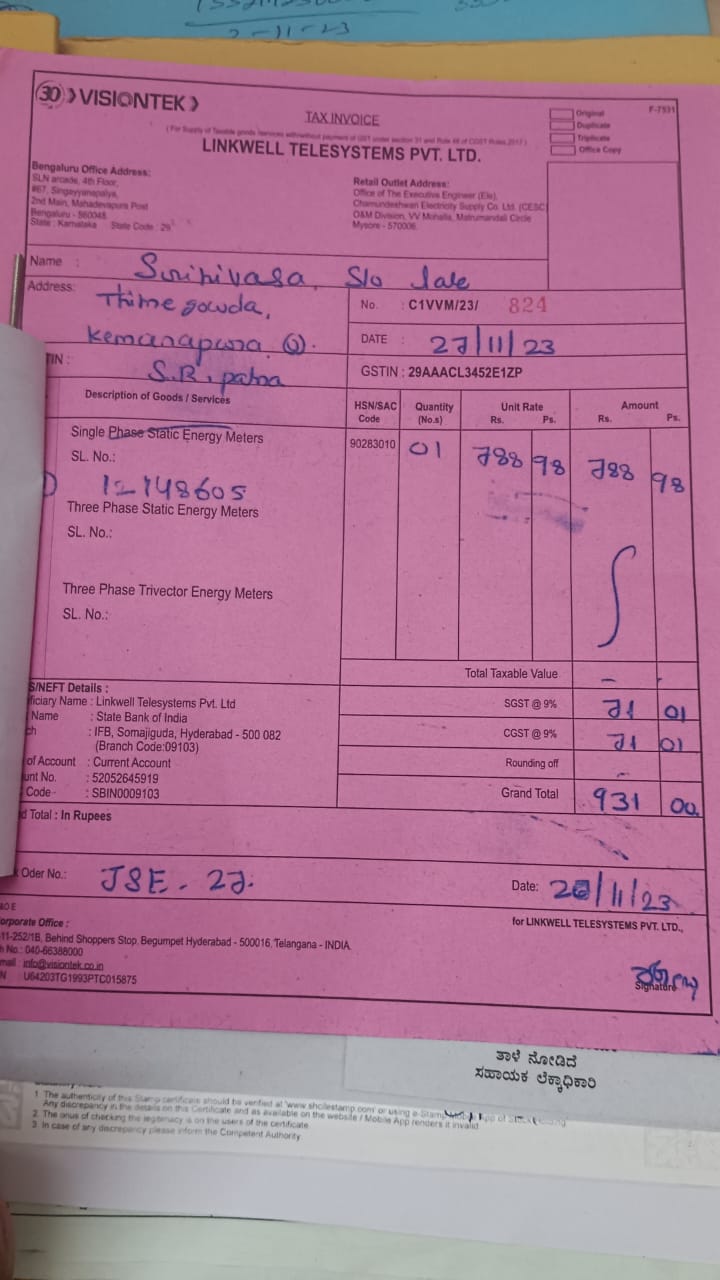 2-11-23
30 VISIONTEK
F-7531
TAX INVOICE
Original
Duplicate
Triplicate
Office Copy
LINKWELL TELESYSTEMS PVT. LTD.
Bengaluru Office Address:
SLN arcade, 4th Floor,
#67, Singayyanapalya,
2nd Main, Mahadevapura Post
Bengaluru - 560048
State : Karnataka State Code : 29
Retail Outlet Address:
Office of The Executive Engineer (Ele),
Chamundeshwari Electricity Supply Co. Ltd. (CESC)
O&M Division, VV Mohalla, Matrumandali Circle
Mysore - 570006.
Name : Srinivasa, S/o late
Address: Thime gowda,
Kemanapura
TIN : S.R. patna
No. : C1VVM/23/ 824
DATE : 27/11/23
GSTIN : 29AAACL3452E1ZP
Description of Goods / Services
HSN/SAC Code
Quantity (No.s)
Unit Rate Rs. Ps.
Amount Rs. Ps.
Single Phase Static Energy Meters 90283010 01 788 98 788 98
SL. No.:
12148605
Three Phase Static Energy Meters
SL. No.:
Three Phase Trivector Energy Meters
SL. No.:
Total Taxable Value -
SGST @ 9% 71 01
CGST @ 9% 71 01
Rounding off -
Grand Total 931 00
S/NEFT Details :
ficiary Name : Linkwell Telesystems Pvt. Ltd
Name : State Bank of India
ch : IFB, Somajiguda, Hyderabad - 500 082
(Branch Code:09103)
of Account : Current Account
unt No. : 52052645919
Code - : SBIN0009103
d Total : In Rupees
Oder No.: JSE - 27.
Date: 26/11/23
for LINKWELL TELESYSTEMS PVT. LTD.,
orporate Office :
11-252/1B, Behind Shoppers Stop, Begumpet Hyderabad - 500016, Telangana - INDIA.
h No.: 040-66388000
mail : info@visiontek.co.in
N U64203TG1993PTC015875
Signature
ತಾಳೆ ನೋಡಿದೆ
ಸಹಾಯಕ ಲೆಕ್ಕಾಧಿಕಾರಿ
1. The authenticity of this Stamp certificate should be verified at 'www.shcilestamp.com' or using e-Stamp Mobile App of Stock Holding.
Any discrepancy in the details on this Certificate and as available on the website / Mobile App renders it invalid.
2. The onus of checking the legitimacy is on the users of the certificate.
3. In case of any discrepancy please inform the Competent Authority.